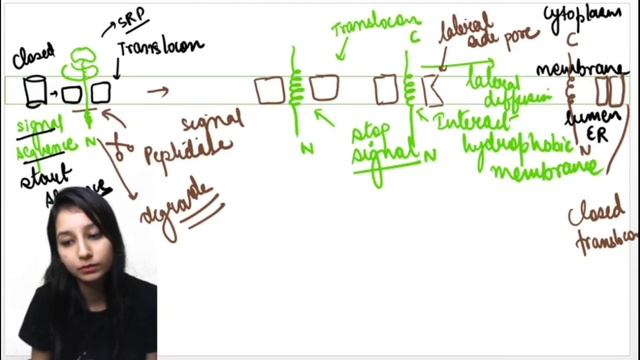 SRP
closed
Translocon
signal
sequence
N
start
signal
Peptidase
degrade
Translocon
N
stop
signal
C
N
lateral
side pore
lateral
diffusion
Interact
hydrophobic
membrane
cytoplasm
C
membrane
lumen
ER
N
closed
transloco